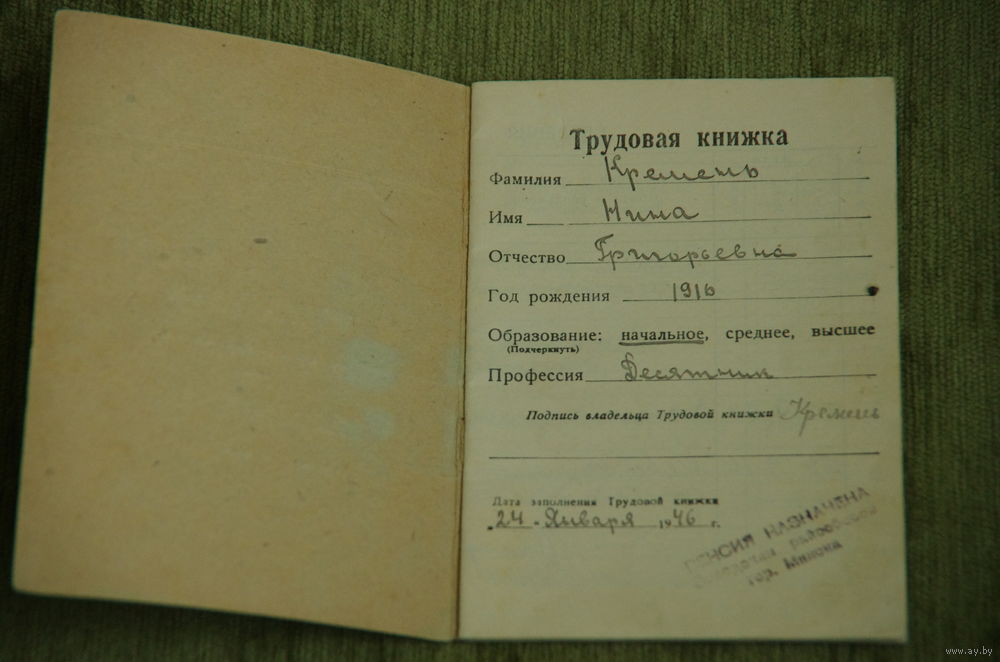 Трудовая книжка
Фамилия Кремень
Имя Нина
Отчество Григорьевна
Год рождения 1916
Образование: начальное, среднее, высшее
(Подчеркнуть)
Профессия Десятник
Подпись владельца Трудовой книжки Кремень
Дата заполнения Трудовой книжки
"24 - Января 1946 г.
ПЕНСИЯ НАЗНАЧЕНА
гор. Минска
www.ay.by